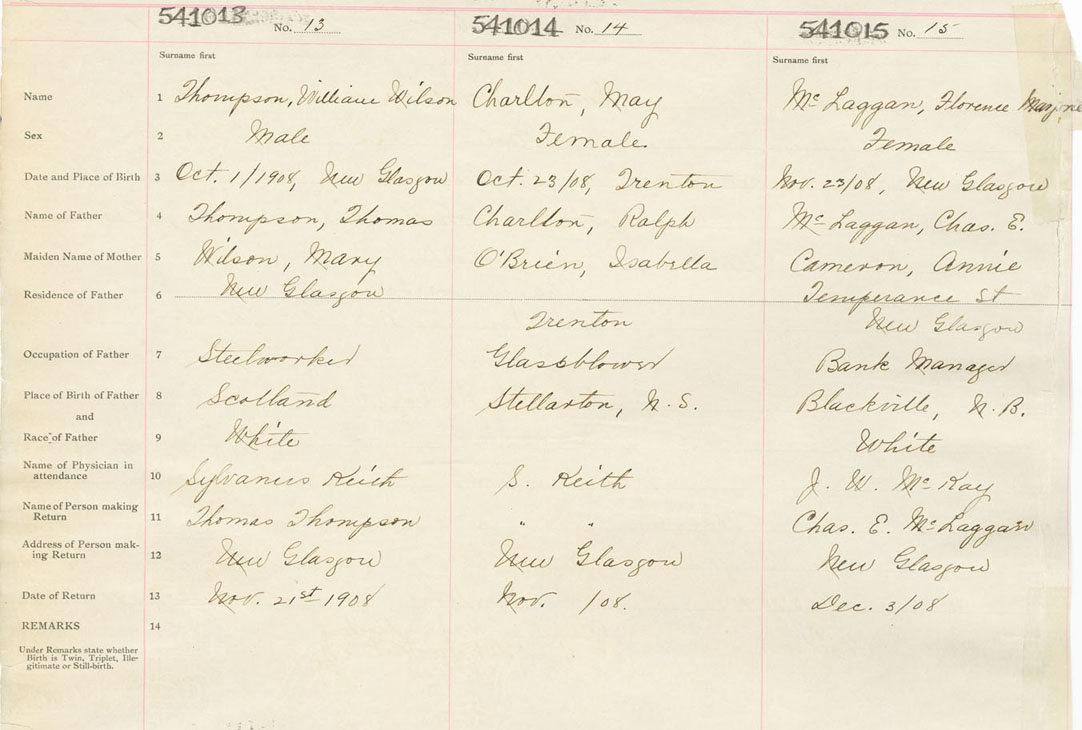 541013 No. 13 541014 No. 14 541015 No. 15
Surname first Surname first Surname first
Name 1 Thompson, William Wilson Charlton, May Mc Laggan, Florence Marjorie
Sex 2 Male Female Female
Date and Place of Birth 3 Oct. 1/1908, New Glasgow Oct. 23/08, Trenton Nov. 23/08, New Glasgow
Name of Father 4 Thompson, Thomas Charlton, Ralph Mc Laggan, Chas. E.
Maiden Name of Mother 5 Wilson, Mary O'Brien, Isabella Cameron, Annie
Residence of Father 6 New Glasgow Trenton Temperance St
New Glasgow
Occupation of Father 7 Steelworker Glassblower Bank Manager
Place of Birth of Father 8 Scotland Stellarton, N. S. Blackville, N. B.
and
Race of Father 9 White White
Name of Physician in
attendance 10 Sylvanus Keith S. Keith J. W. Mc Kay
Name of Person making
Return 11 Thomas Thompson " " Chas. E. Mc Laggan
Address of Person mak-
ing Return 12 New Glasgow New Glasgow New Glasgow
Date of Return 13 Nov. 21st 1908 Nov. /08. Dec. 3/08
REMARKS 14
Under Remarks state whether
Birth is Twin, Triplet, Ille-
gitimate or Still-birth.